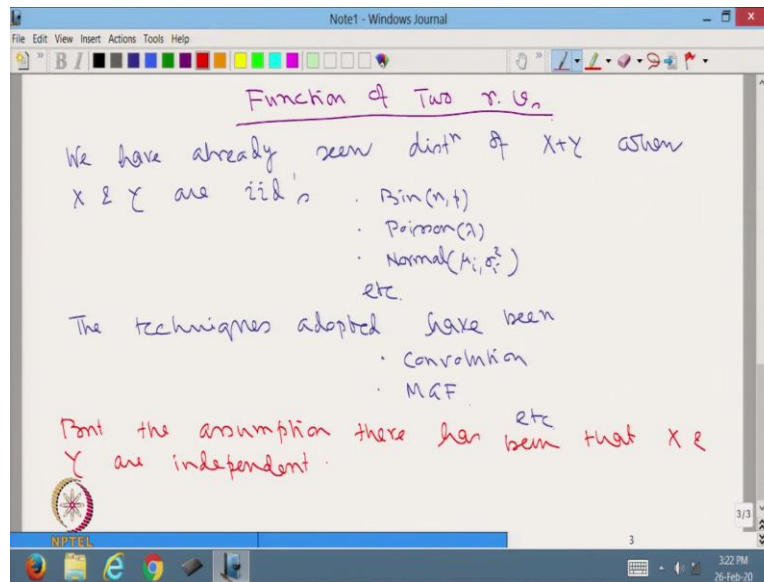 Note1 - Windows Journal
File Edit View Insert Actions Tools Help
B I
Function of Two r.v.s
We have already seen distⁿ of X+Y when
X & Y are iid's . Bin(n,p)
. Poisson(λ)
. Normal(μᵢ, σᵢ²)
etc.
The techniques adopted have been
. Convolution
. MGF
etc
But the assumption there has been that X &
Y are independent.
NPTEL
3/3
3
3:22 PM
26-Feb-20